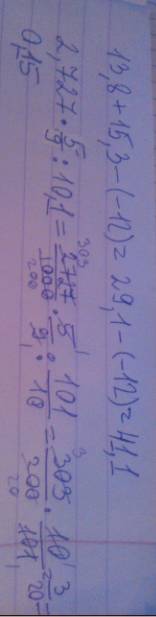 13,8+15,3-(-12)=29,1-(-12)=41,1
2,727·5/9:10,1=2727/1000·5/9:101/10=303/200·10/101=3/20=
0,15